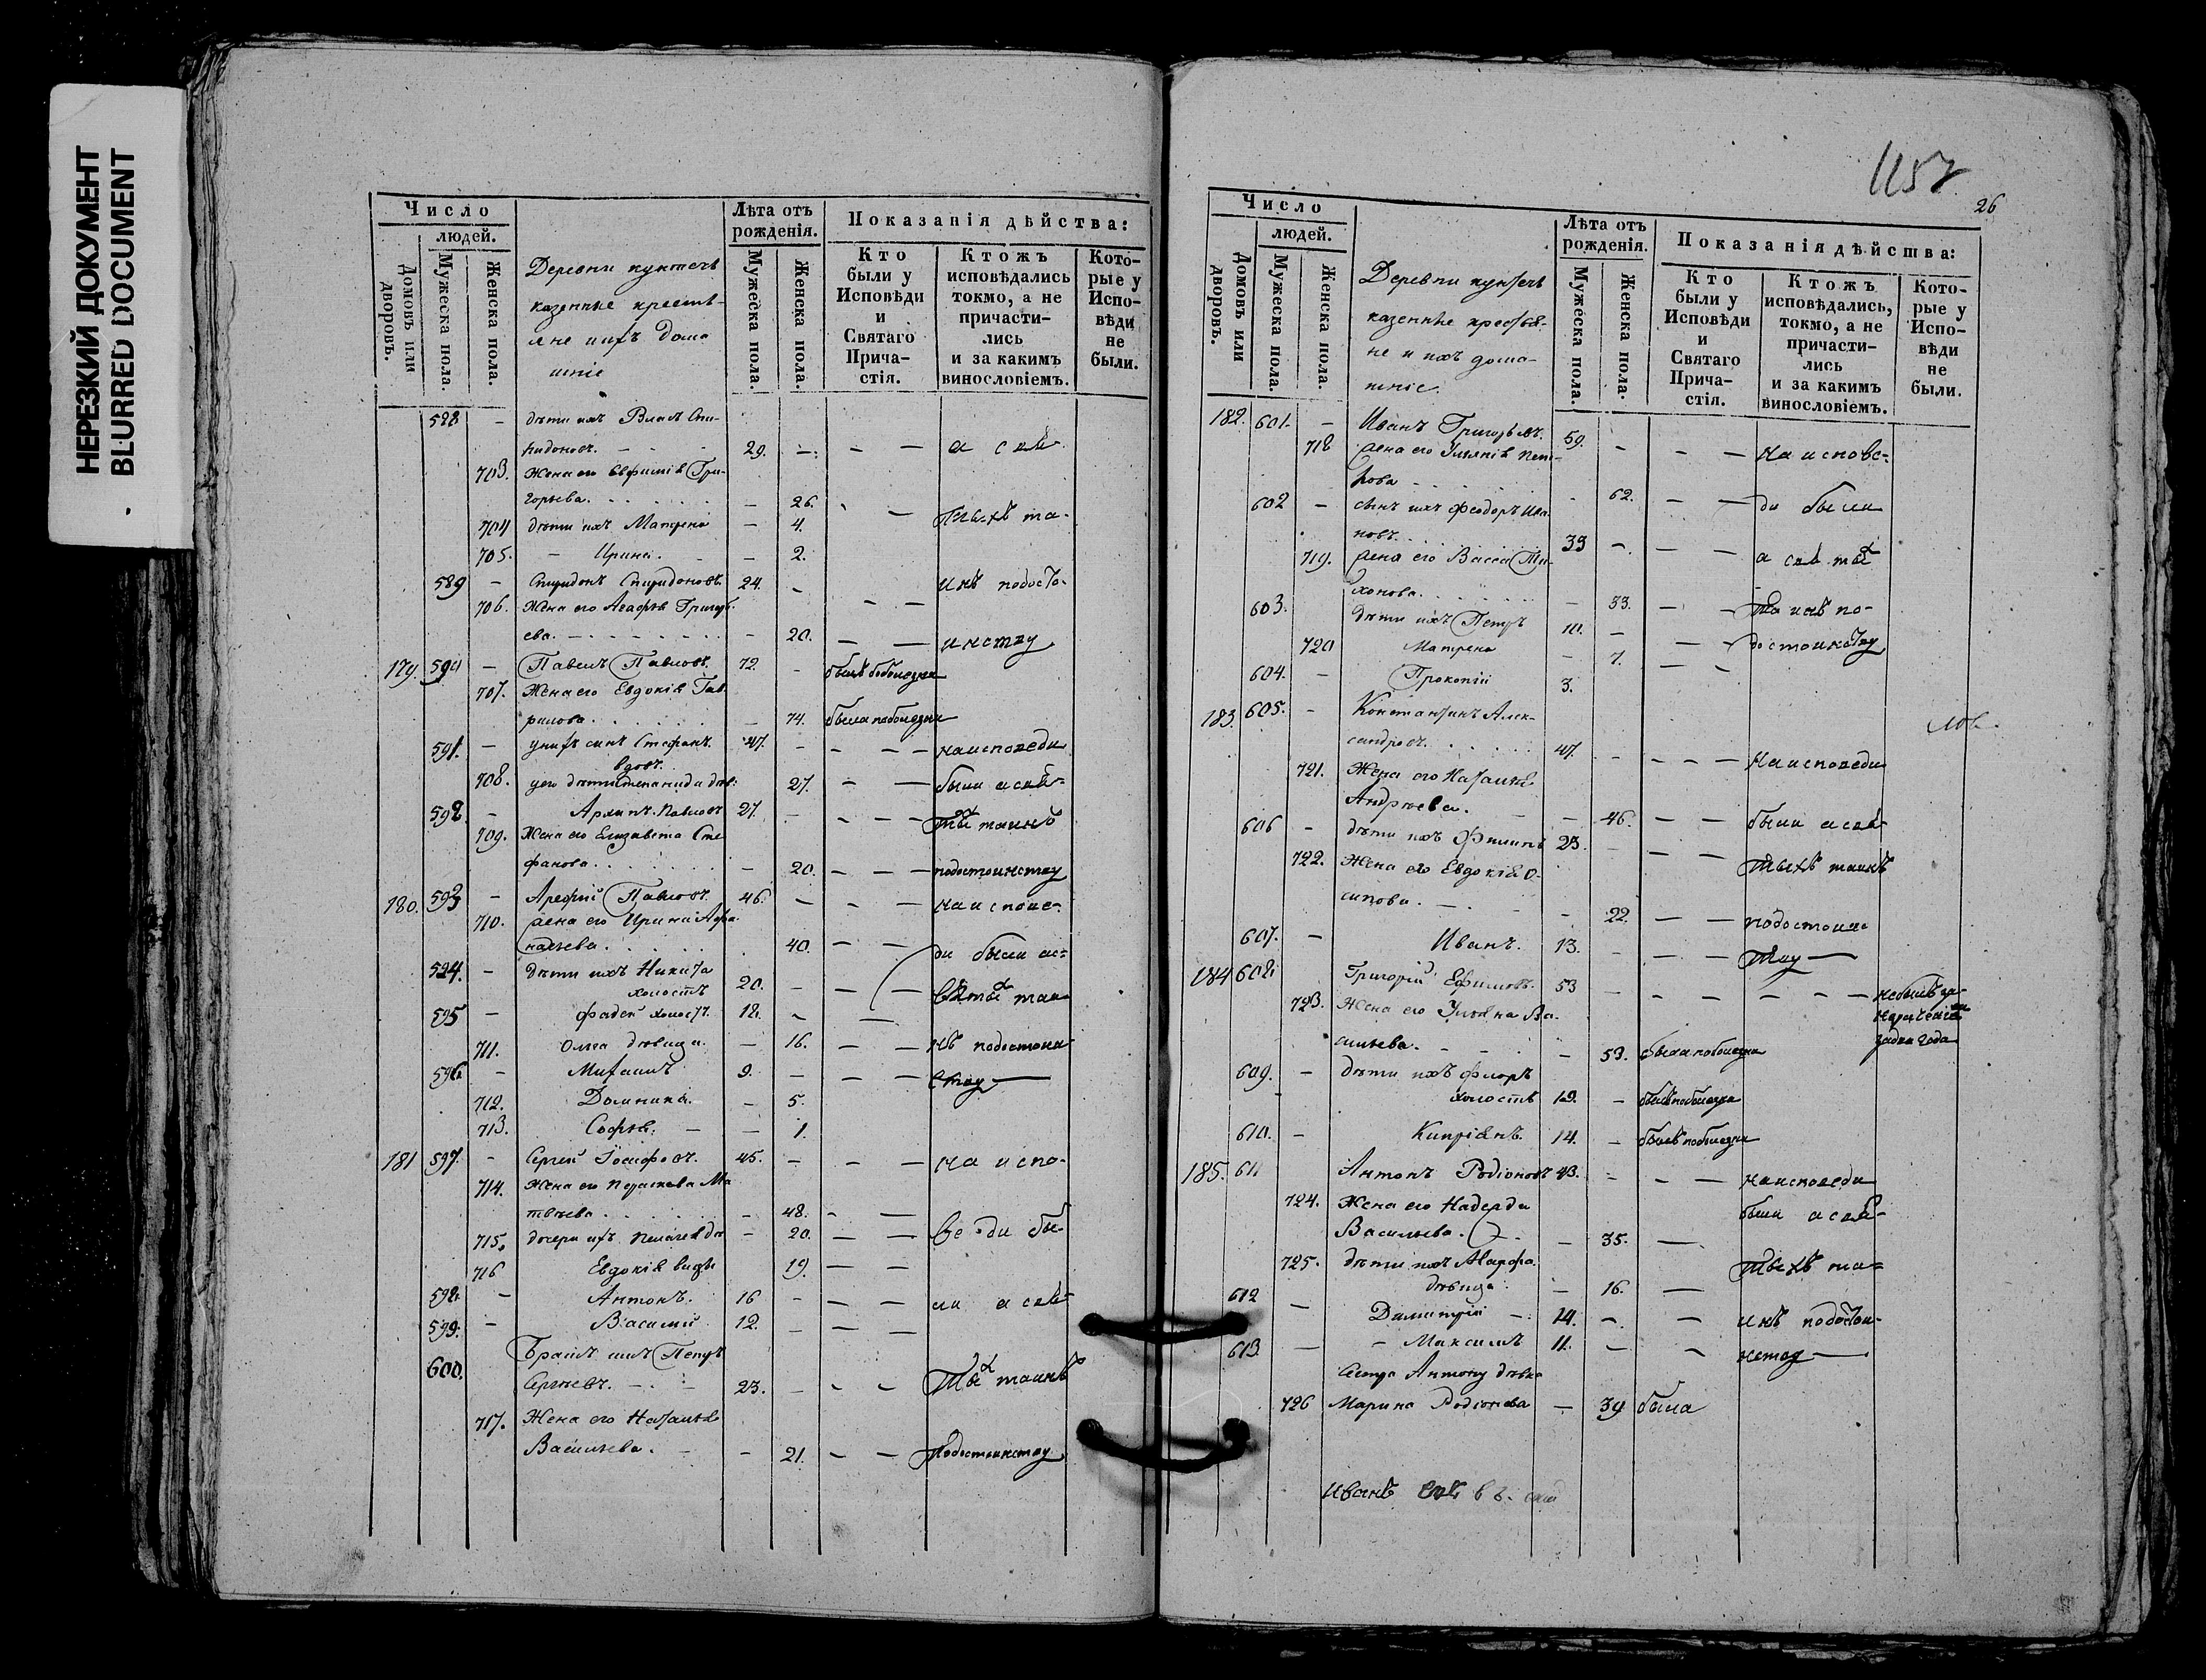 НЕРЕЗКИЙ ДОКУМЕНТ
BLURRED DOCUMENT
Число
людей.
Домовъ или дворовъ.
Мужеска пола.
Женска пола.
казенные крестья-
Лѣта отъ рожденія.
Мужеска пола.
Женска пола.
Показанія дѣйства:
Кто были у Исповѣди и Святаго Прича-стія.
Ктожъ исповѣдались токмо, а не причасти-лись и за какимъ винословіемъ.
Кото-рые у Испо-вѣди не были.
528 - дѣти ихъ Власъ Спи-
ридоновъ. 29. - а свя-
703. Жена его Евфимія Гри-
горьева. - 26.
704 дѣти ихъ Матрена - 4.
705. - Ирина. - 2.
589 - Спиридонъ Спиридоновъ. 24. - инъ подосто-
706. Жена его Агафья Григорь-
ева. - 20. инству
179. 590 - Павелъ Павловъ. 72. - былъ поболезни
707. Жена его Евдокія Гав-
рилова. - 74. была поболезни
591. - у нихъ сынъ Стефанъ. 47. - наисповеди
вдовъ.
708. 27. были а свя-
592 - Архипъ Павловъ 27. -
709. Жена его Елизавета Сте-
фанова. - 20. подостоинству
180. 593 - Арефий Павловъ. 46. - на испове-
710. Жена его Ирина Афа-
насьева. 40. ди были ас-
594. - дѣти ихъ Никита
холостъ 20. -
595 - Фадей холостъ. 18. -
711. Олга дѣвица. - 16. нъ подостоин
596 - Михаилъ 9. - ству
712. Домника. - 5.
713. Софья. - 1.
181 597. - Сергей Іосифовъ. 45. - на испо-
714. Жена его Параскева Ма
твѣева. - 48.
715. дочери ихъ Пелагея дѣ - 20. ве ди бы-
716 Евдокія вицы 19.
598. - Антонъ. 16 - ли а свя-
599. - Василий. 12. -
600. Братъ ихъ Петръ
Сергѣевъ. - 23. -
717. Жена его Наталья
Васильева. - 21. Подостоинству
1157
26
Число
людей.
Домовъ или дворовъ.
Мужеска пола.
Женска пола.
казенные крестья-
не и ихъ дома-
шніе.
Лѣта отъ рожденія.
Мужеска пола.
Женска пола.
Показанія дѣйства:
Кто были у Исповѣди и Святаго Прича-стія.
Ктожъ исповѣдались, токмо, а не причасти-лись и за какимъ винословіемъ.
Кото-рые у Испо-вѣди не были.
182. 601. - Иванъ Григорьевъ. 59. - на испове-
718 Жена его Ульянія Пет-
рова - 62. ди были
602 - сынъ ихъ Феодоръ Ива-
новъ. 33 -
719. Жена его Васса Ти-
хонова. - 33.
603. дѣти ихъ Петръ 10. -
720 Матрена - 7. достоинству
604. - Прокопій 3.
183. 605. - Константинъ Алек-
сандровъ. 47. - На исповеди
721. Жена его Наталья
Андреева. - 46. были а свя-
606 - дѣти ихъ Филипъ 23. -
722. Жена его Евдокія О-
сипова. - 22. подостоин
607. - Иванъ. 13. - ству
184 608 Григорій Ефимовъ. 53 - небылъ за
723. Жена его Ульяна Ва-
сильева. - 53. была поболезни
609. - дѣти ихъ Флоръ
холостъ 19. - былъ поболезни
610. - Кипріянъ. 14. - былъ поболезни
185. 611 Антонъ Родіоновъ 43. - наисповеди
724. Жена его Надежда были а свя-
Васильева. - 35.
725. дѣти ихъ Марфа
дѣвица - 16.
612 - Димитрій - 14. - инъ подостои-
613. - Максимъ 11. - нству
Сестра Антону дѣвка
726 Марина Родіонова - 39 была
Иванъ